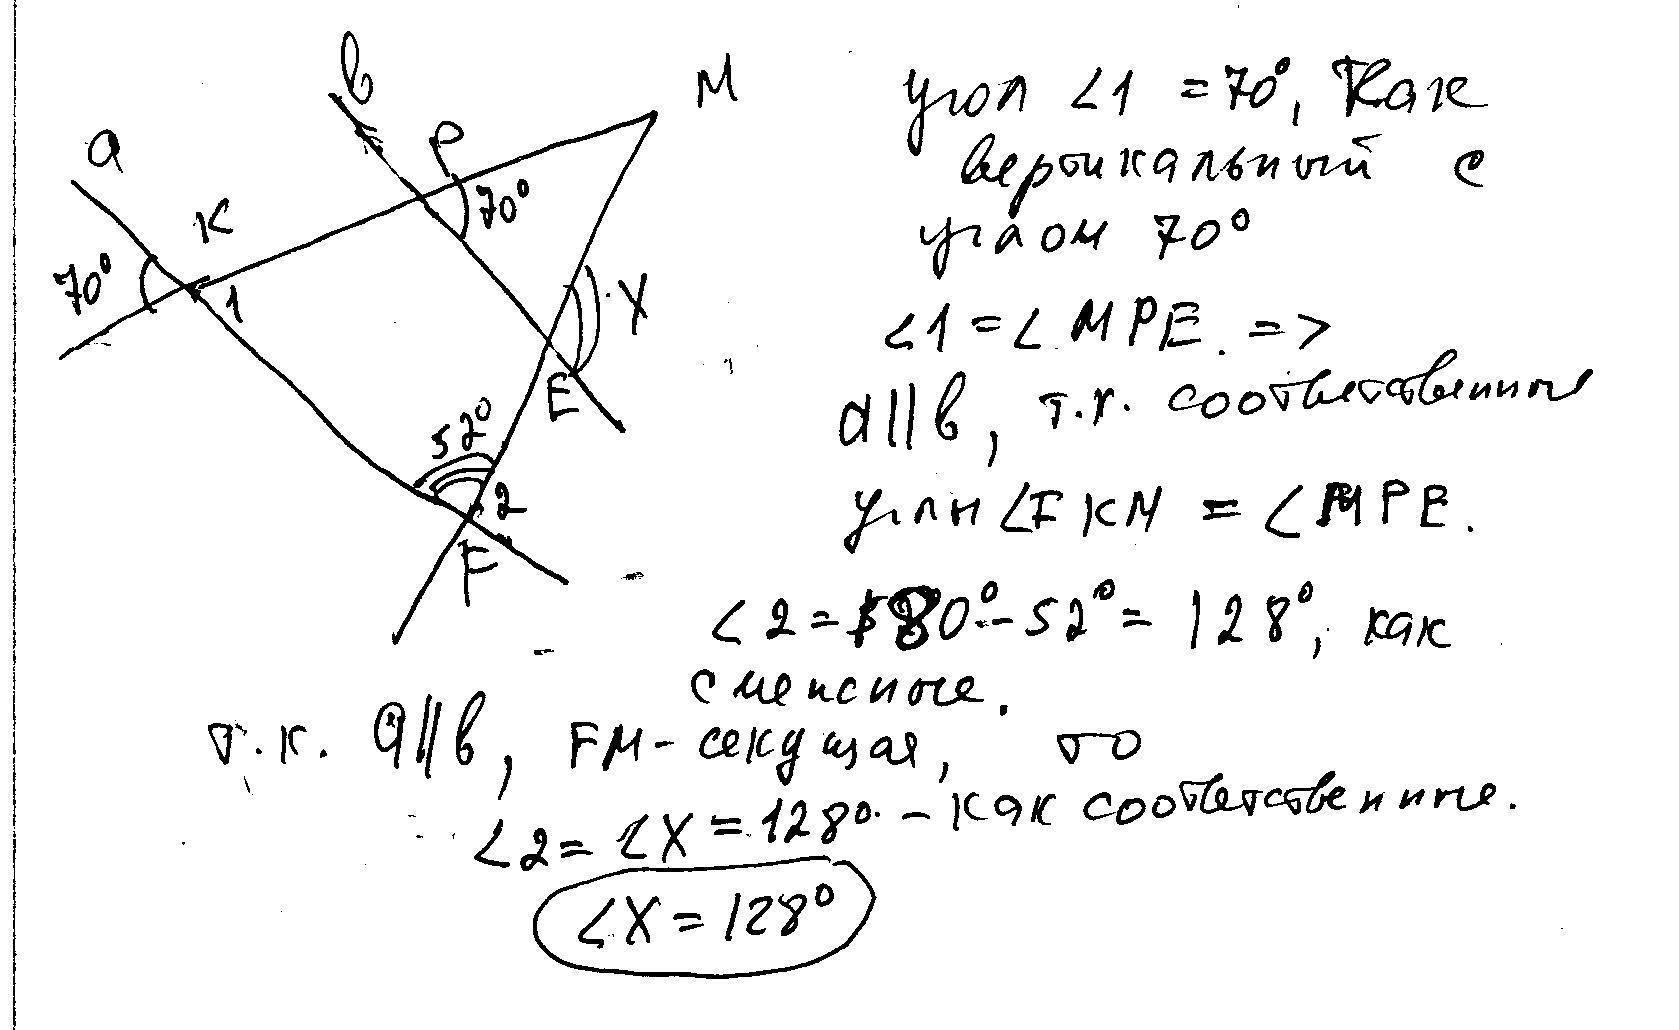 a
в
K
P
M
70°
1
70°
X
E
52°
2
F
угол ∠1 = 70°, как
вертикальный с
углом 70°
∠1 = ∠MPE. =>
a||в, т.к. соответственные
углы ∠FKM = ∠MPE.
∠2 = 180° - 52° = 128°, как
смежные.
т.к. a||в, FM - секущая, то
∠2 = ∠X = 128° - как соответственные.
∠X = 128°